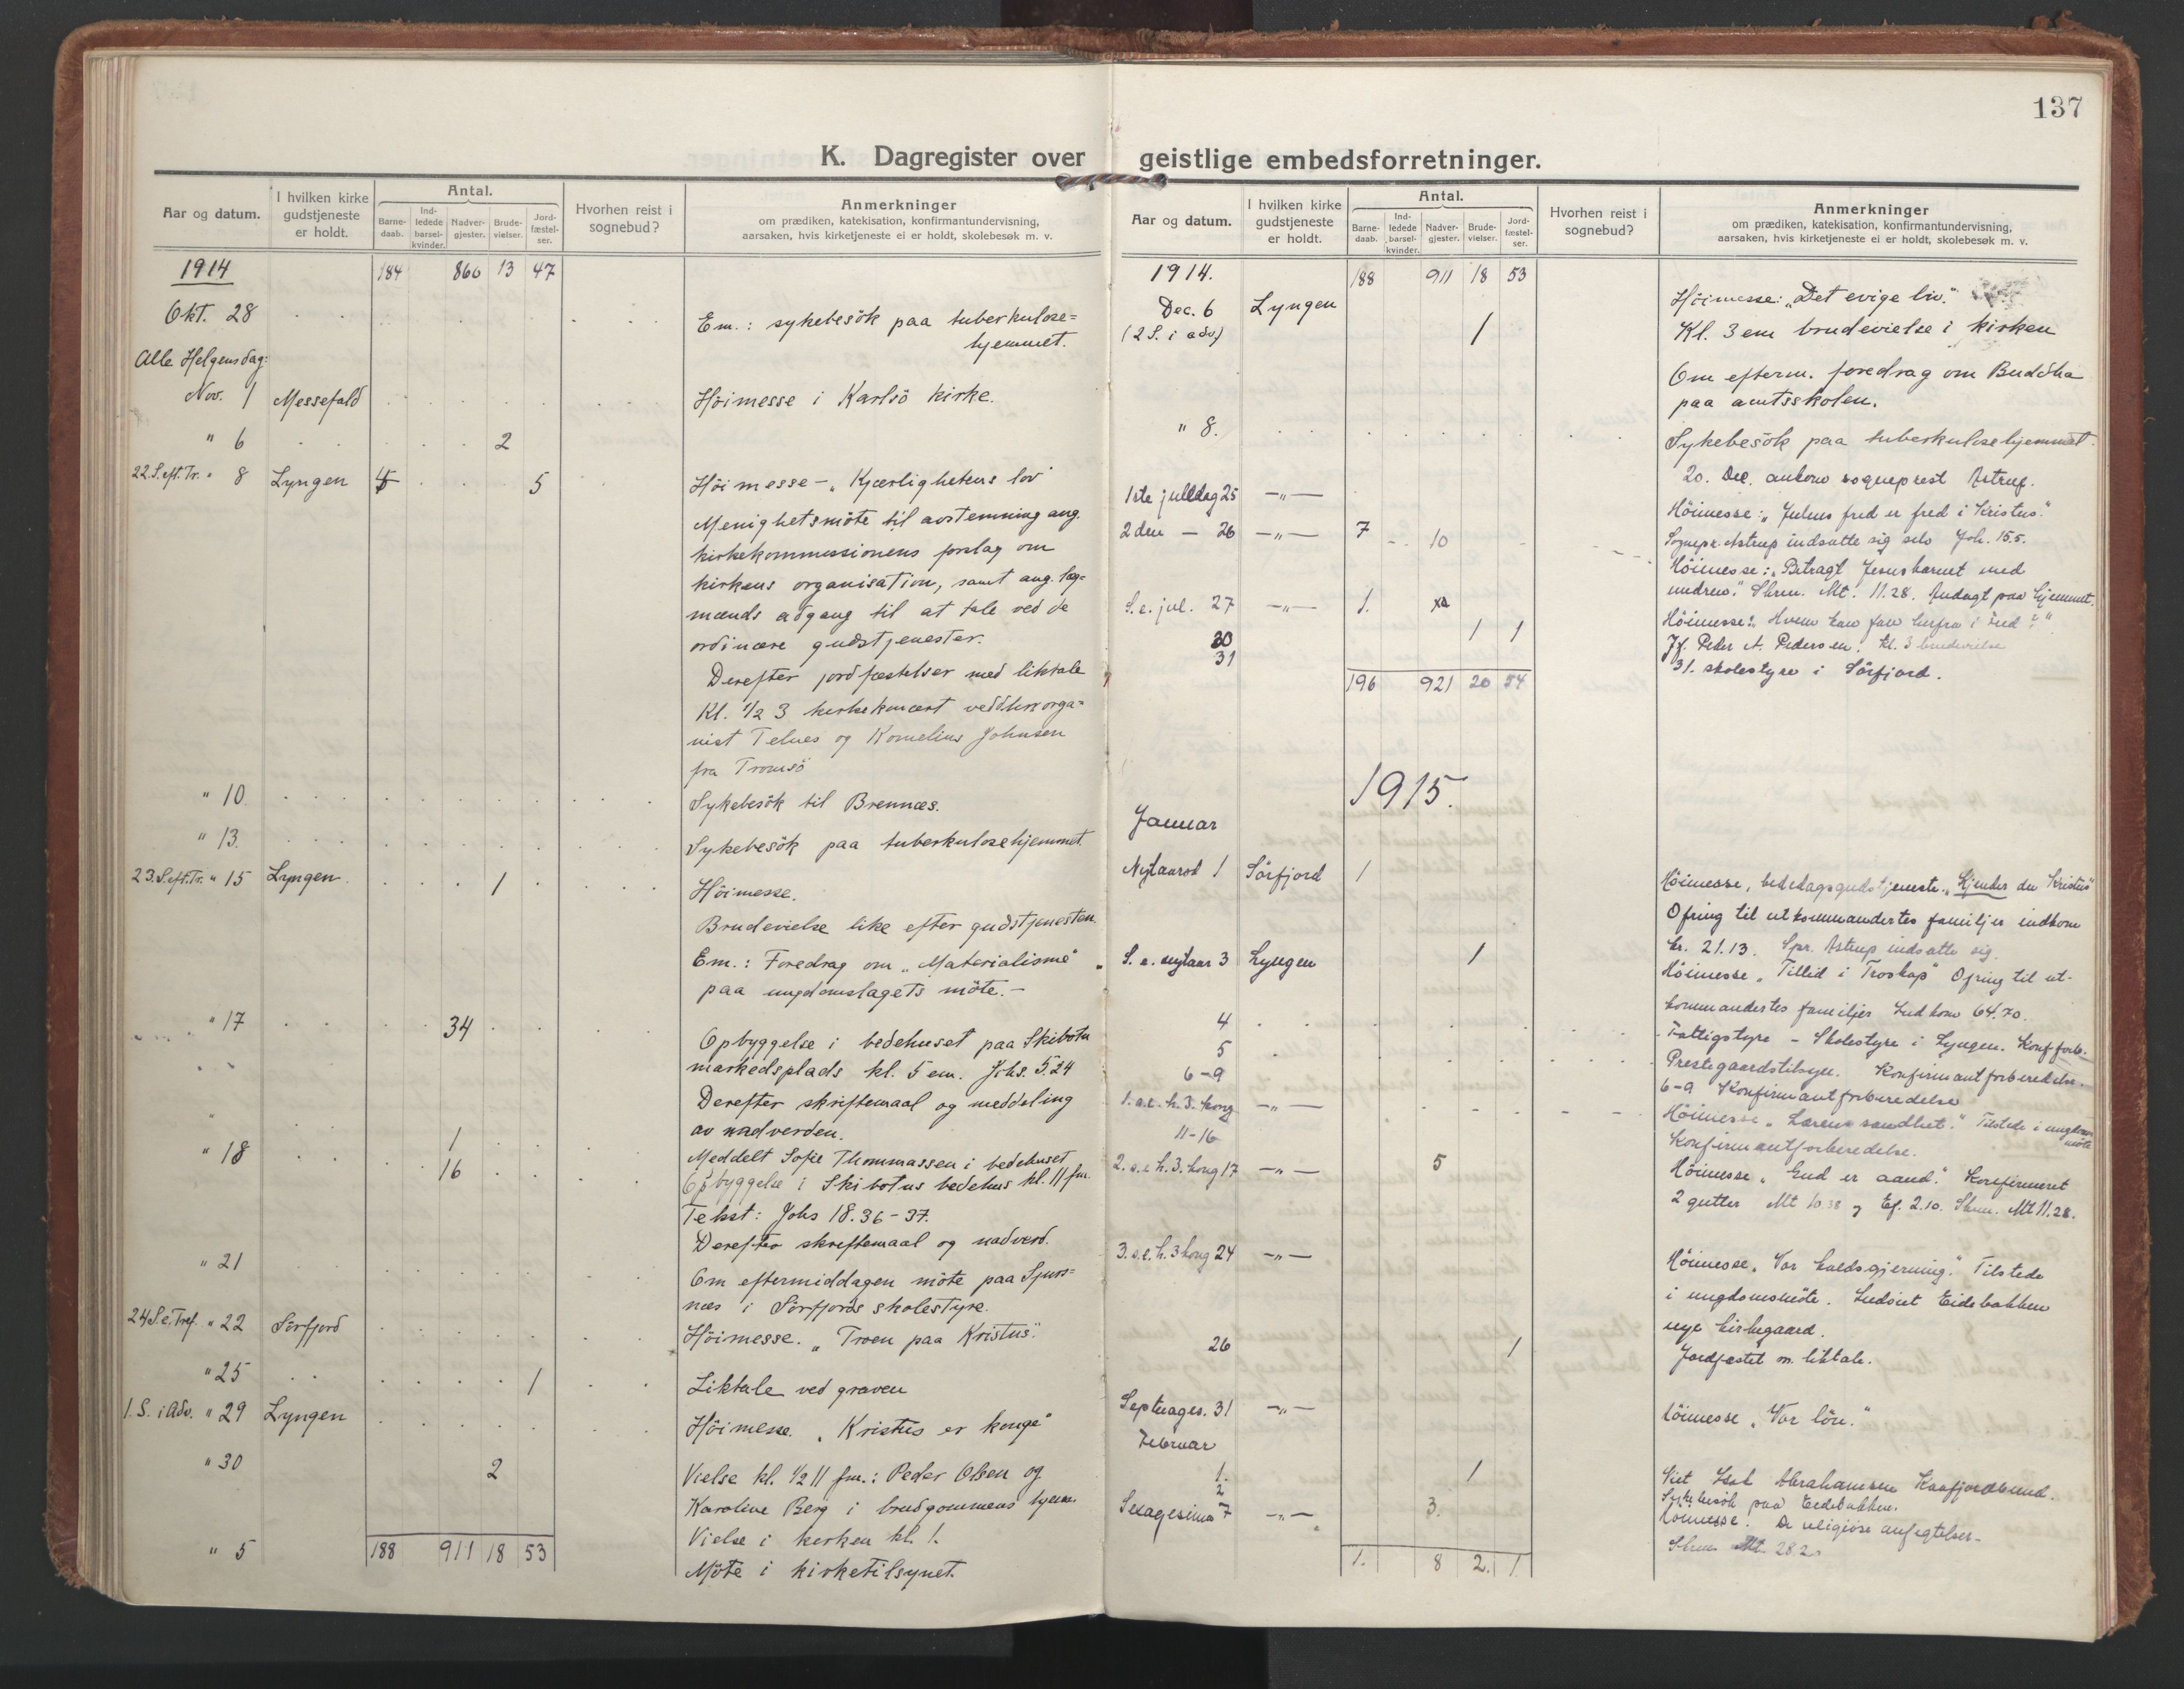 137
K. Dagregister over geistlige embedsforretninger.
Aar og datum.
I hvilken kirke gudstjeneste er holdt.
Antal.
Barne-daab.
Ind-ledede barsel-kvinder.
Nadver-gjester.
Brude-vielser.
Jord-fæstel-ser.
Hvorhen reist i sognebud?
Anmerkninger
om prædiken, katekisation, konfirmantundervisning,
aarsaken, hvis kirketjeneste ei er holdt, skolebesøk m. v.
1914 184 860 13 47
Okt. 28 Em.: sykebesök paa tuberkulose=
hjemmet.
Alle Helgensdag:
Nov. 1 Messefald Höimesse i Karlsö kirke.
" 6 2
22 S. eft. Tr. " 8 Lyngen 4 5 Höimesse - "Kjærlighetens lov"
Menighetsmöte til avstemning ang.
kirkekommissionens forslag om
kirkens organisation, samt ang. læg=
mænds adgang til at tale ved de
ordinære gudstjenester.
Derefter jordfæstelser med liktale
Kl. 1/2 3 kirkekoncert ved orga=
nist Telnes og Kornelius Johnsen
fra Tromsö
" 10 Sykebesök til Brennæs.
" 13. Sykebesök paa tuberkulosehjemmet.
23. S. eft. Tr. " 15 Lyngen. 1 Höimesse.
Brudevielse like efter gudstjenesten.
Em.: Foredrag om "Materialisme"
paa ungdomslagets möte. -
" 17 34 Opbyggelse i bedehuset paa Skibotn
markedsplads kl. 5 em. Johs. 5.24
Derefter skriftemaal og meddeling
av nadverden.
" 18 1 Meddelt Sofie Thommassen i bedehuset
16 Opbyggelse i Skibotns bedehus kl. 11 fm.
Tekst: Johs 18.36-37.
Derefter skriftemaal og nadverd.
" 21 Om eftermiddagen möte paa Sjurs=
næs i Sörfjords skolestyre.
24 S. e. Tref. " 22 Sörfjord Höimesse. "Troen paa Kristus".
" 25 1 Liktale ved graven
1. S. i Adv. " 29 Lyngen Höimesse. "Kristus er konge"
" 30 2 Vielse kl. 1/2 11 fm.: Peder Olsen og
Karoline Berg i brudgommens hjem.
Vielse i kirken kl. 1.
" 5 188 911 18 53 Möte i kirketilsynet.
Aar og datum.
I hvilken kirke gudstjeneste er holdt.
Antal.
Barne-daab.
Ind-ledede barsel-kvinder.
Nadver-gjester.
Brude-vielser.
Jord-fæstel-ser.
Hvorhen reist i sognebud?
Anmerkninger
om prædiken, katekisation, konfirmantundervisning,
aarsaken, hvis kirketjeneste ei er holdt, skolebesøk m. v.
1914. 188 911 18 53
Dec. 6 Lyngen Höimesse: "Det evige liv."
(2 S. i adv) 1 Kl. 3 em brudevielse i kirken
Om efterm. foredrag om Buddha
paa amtsskolen.
" 8. Sykebesök paa tuberkulosehjemmet.
20. Dec. ankom sogneprest Astrup.
1ste juledag 25 -"- Höimesse: "Julens fred er fred i Kristus."
2den - 26 -"- 7 10 Sognepr. Astrup indsatte sig selv Joh. 15.5.
Höimesse: "Betragt Jesusbarnet med
undren". Skrm. Mt. 11.28. Andagt paa hjemmet.
S. e. jul. 27 -"- 1. Höimesse: "Hvem kan fare herfra i fred?"
30 1 1 Jf. Peder A. Pedersen. Kl. 3 brudevielse
31 31. skolestyre i Sörfjord.
196 921 20 54
1915.
Januar
Nytaarsd 1 Sörfjord 1 Höimesse, bededagsgudstjeneste. "Kjender du Kristus"
Ofring til utkommandertes familjer indkom
kr. 21.13. Spr. Astrup indsatte sig.
S. e. nytaar 3 Lyngen 1 Höimesse "Tillid i Troskap" Ofring til ut-
kommandertes familjer Indkom 64.70.
4 Fattigstyre - Skolestyre i Lyngen. Konf forb.
5 Prestegaardstilsyn. Konfirmantforberedelse.
6-9 6-9 Konfirmantforberedelse
1. s. e. h. 3. kong -"- Höimesse Tilstede i ungdoms
möte
11-16 Konfirmantforberedelse.
2. s. e h. 3. kong 17 -"- 5 Höimesse "Gud er aand". Konfirmeret
2 gutter Mt 10.38 og Ef. 2.10. Skrm. Mt 11.28.
3. s. e. h. 3 kong 24 -"- Höimesse. "Vor kaldsgjerning." Tilstede
i ungdomsmöte. Indviet Eidebakken
nye kirkegaard.
26 1 Jordfæstet m. liktale.
Septuages. 31 -"- Höimesse "Vor lön."
Februar
1. 1 Viet Isak Abrahamsen Kaafjordbund.
2 Sykebesök paa Eidebakken.
Sexagesima 7 -"- 3. Höimesse. De religiöse anfegtelser.
Skrm Mt. 28.20
1. 8 2. 1